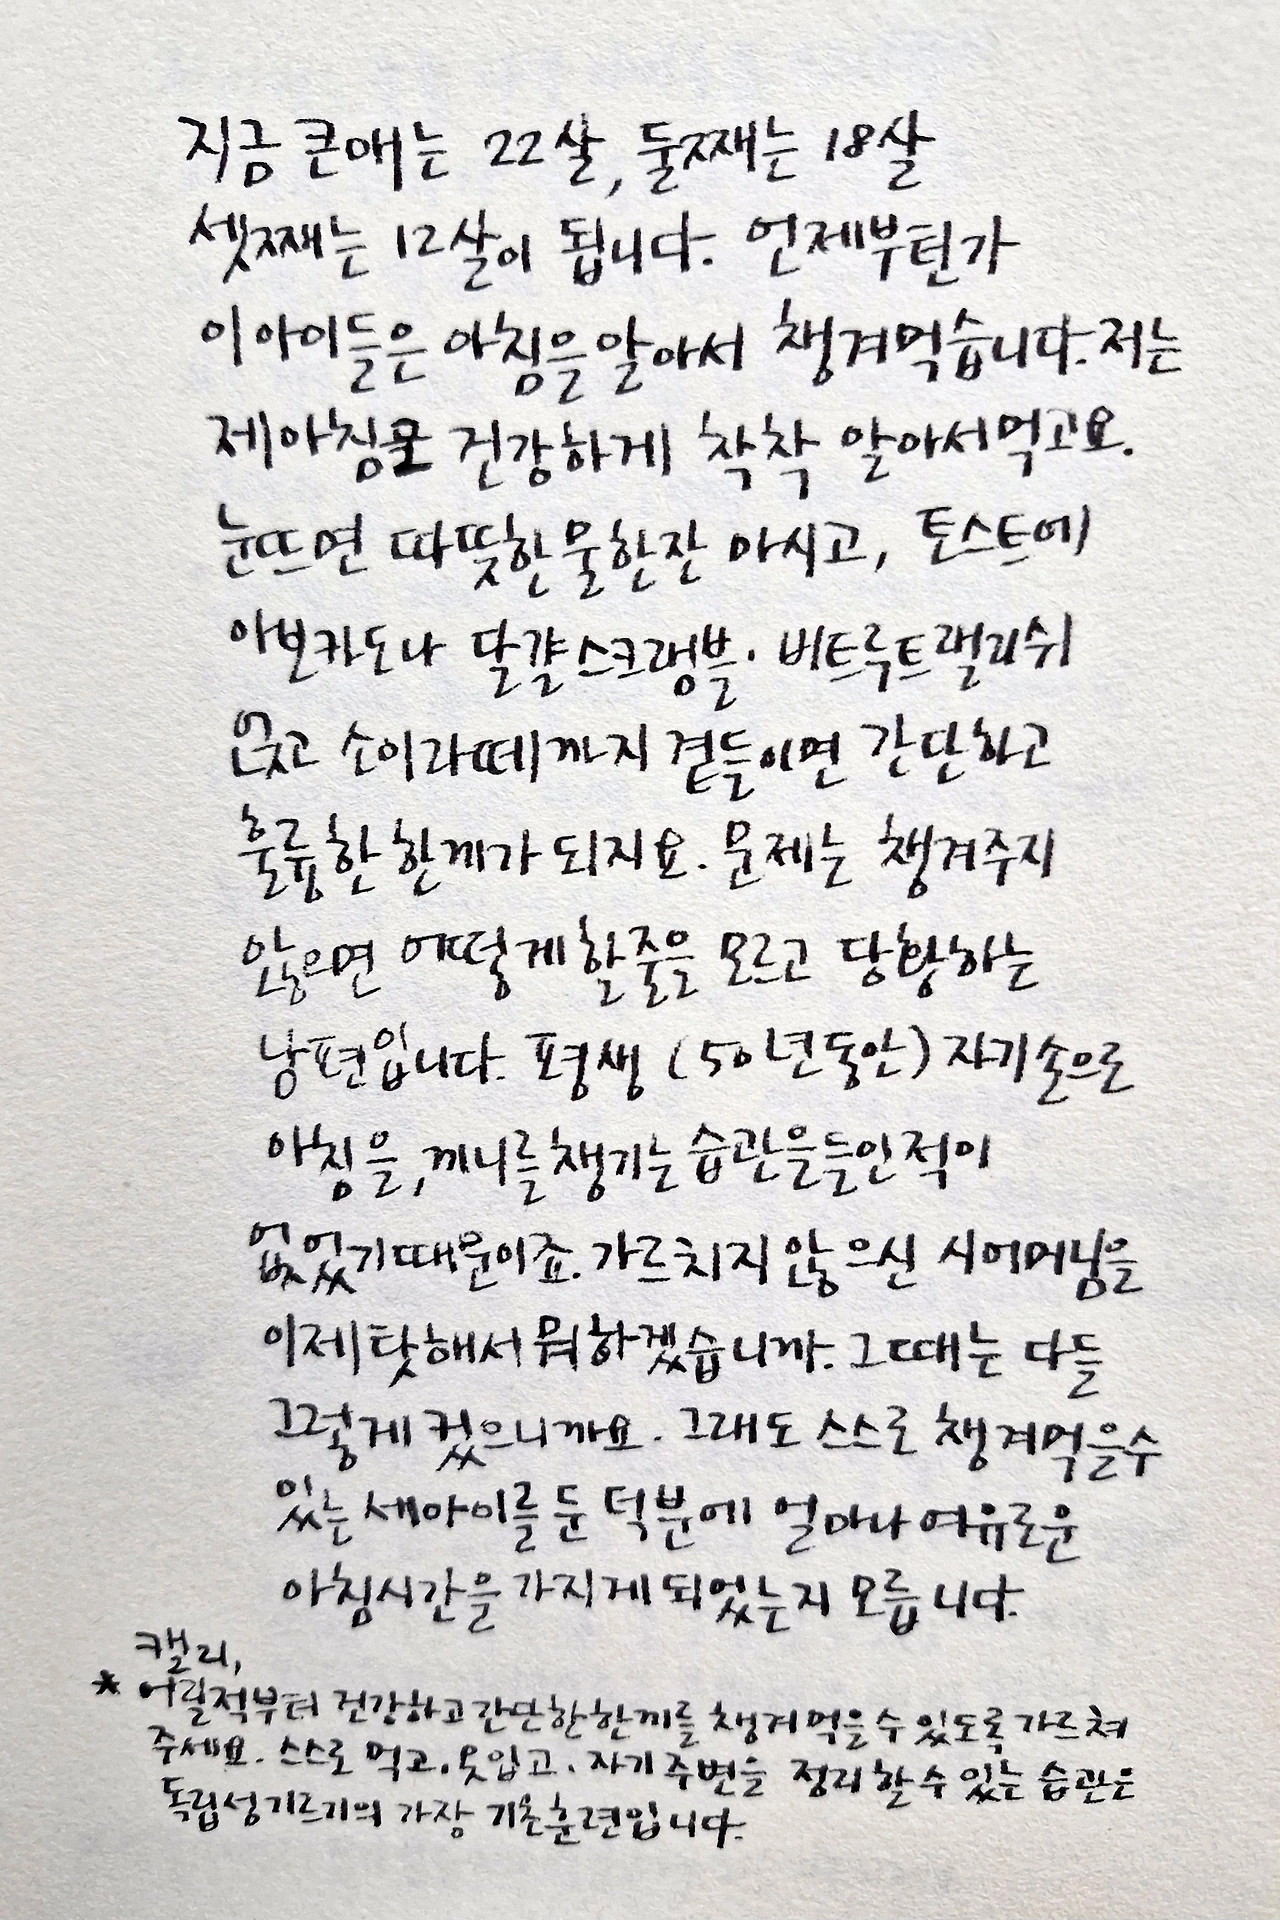 지금 큰애는 22살, 둘째는 18살
셋째는 12살이 됩니다. 언제부턴가
이 아이들은 아침을 알아서 챙겨먹습니다. 저는
제 아침을 건강하게 착착 알아서 먹고요.
눈뜨면 따뜻한 물한잔 마시고, 토스트에
아보카도나 달걀스크램블·비트루트랠리쉬
얹고 소이라떼까지 곁들이면 간단하고
훌륭한 한끼가 되지요. 문제는 챙겨주지
않으면 어떻게 할줄을 모르고 당황하는
남편입니다. 평생 (50년동안) 자기손으로
아침을, 끼니를 챙기는 습관을 들인적이
없었기 때문이죠. 가르치지 않으신 시어머님을
이제 탓해서 뭐하겠습니까. 그때는 다들
그렇게 컸으니까요. 그래도 스스로 챙겨먹을수
있는 세아이를 둔 덕분에 얼마나 여유로운
아침시간을 가지게 되었는지 모릅니다.
캘리,
* 어릴적부터 건강하고 간단한 한끼를 챙겨먹을 수 있도록 가르쳐
주세요. 스스로 먹고, 옷입고, 자기 주변을 정리할 수 있는 습관은
독립성 기르기의 가장 기초훈련입니다.